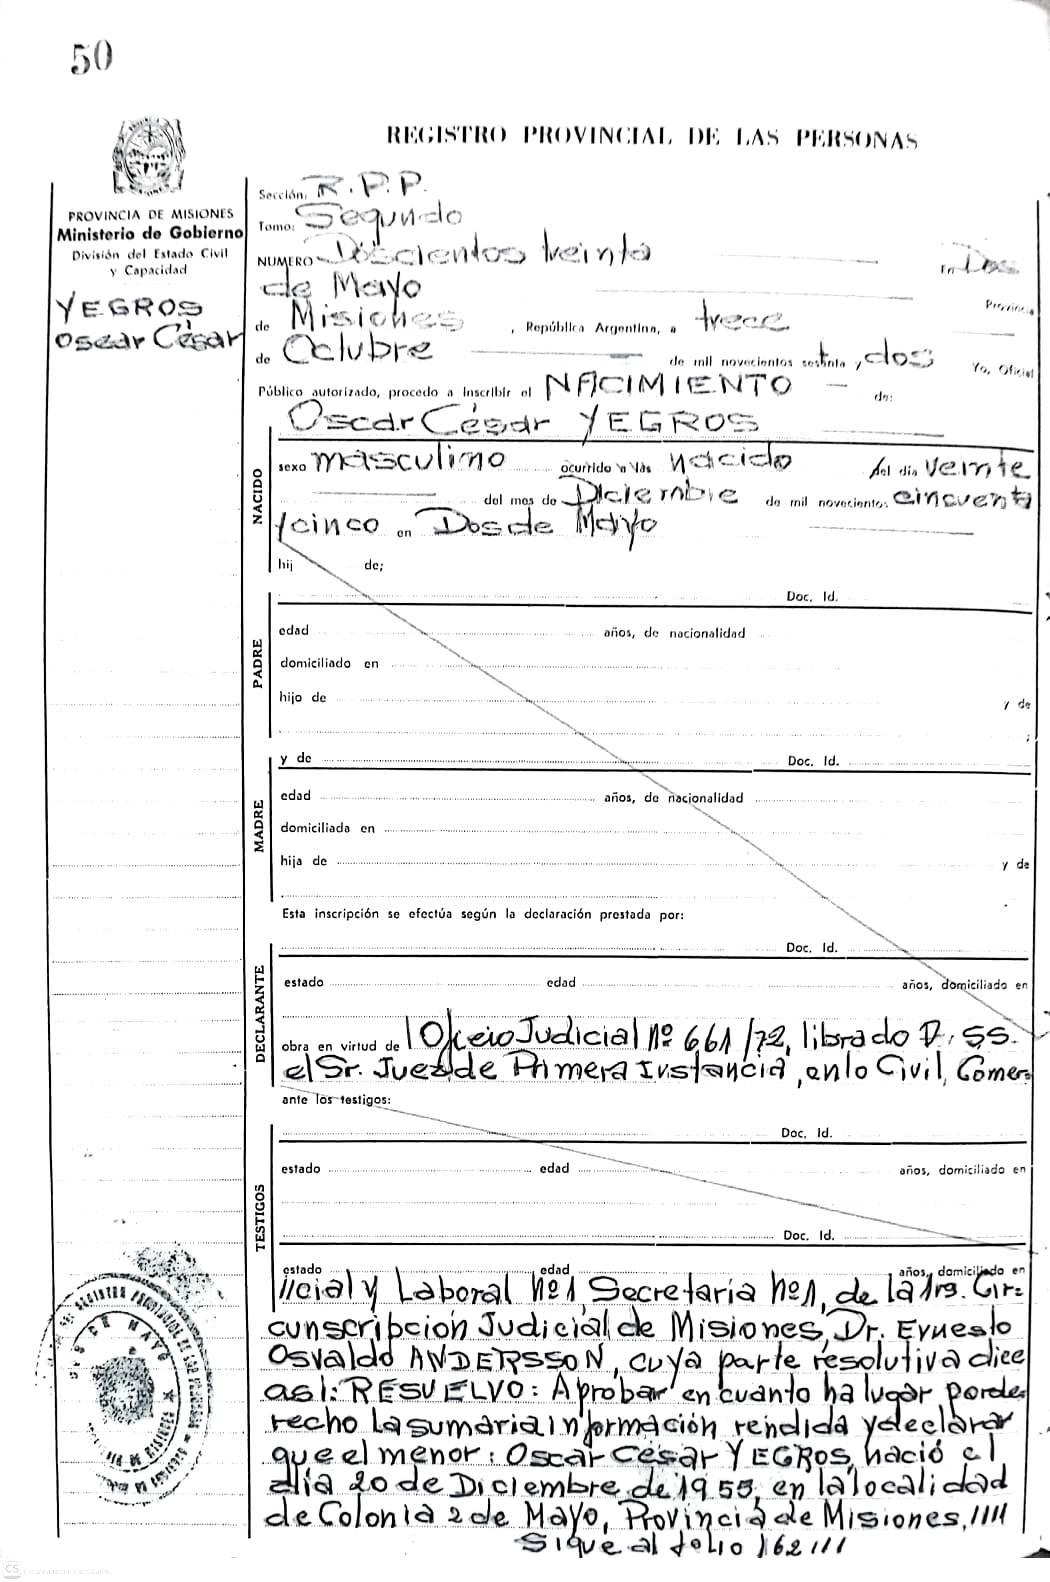 50
REGISTRO PROVINCIAL DE LAS PERSONAS
PROVINCIA DE MISIONES
Ministerio de Gobierno
División del Estado Civil
y Capacidad
YEGROS
Oscar César
Sección: R.P.P.
Tomo: Segundo
NUMERO Doscientos treinta En Dos
de Mayo Provincia
de Misiones, República Argentina, a trece
de Octubre de mil novecientos setenta y dos Yo, Oficial
Público autorizado, procedo a inscribir el NACIMIENTO de:
Oscar César YEGROS
NACIDO
sexo masculino ocurrido a las nacido del día veinte
del mes de Diciembre de mil novecientos cincuenta
y cinco en Dos de Mayo
hij de;
Doc. Id.
PADRE
edad años, de nacionalidad
domiciliado en
hijo de y de
;
y de Doc. Id.
MADRE
edad años, de nacionalidad
domiciliada en
hija de y de
Esta inscripción se efectúa según la declaración prestada por:
Doc. Id.
DECLARANTE
estado edad años, domiciliado en
obra en virtud de Oficio Judicial nº 661/72, librado P. SS.
el Sr. Juez de Primera Instancia, en lo Civil, Comer
ante los testigos:
Doc. Id.
TESTIGOS
estado edad años, domiciliado en
Doc. Id.
estado edad años, domiciliado en
//cial y Laboral nº1 Secretaria nº1, de la 1ra. Cir=
cunscripción Judicial de Misiones, Dr. Ernesto
Osvaldo ANDERSSON, cuya parte resolutiva dice
así: RESUELVO: Aprobar en cuanto ha lugar por de
recho la sumaria información rendida y declarar
que el menor: Oscar César YEGROS, nació el
día 20 de Diciembre de 1955, en la localidad
de Colonia 2 de Mayo, Provincia de Misiones, ////
Sigue al folio 162 ///
CS